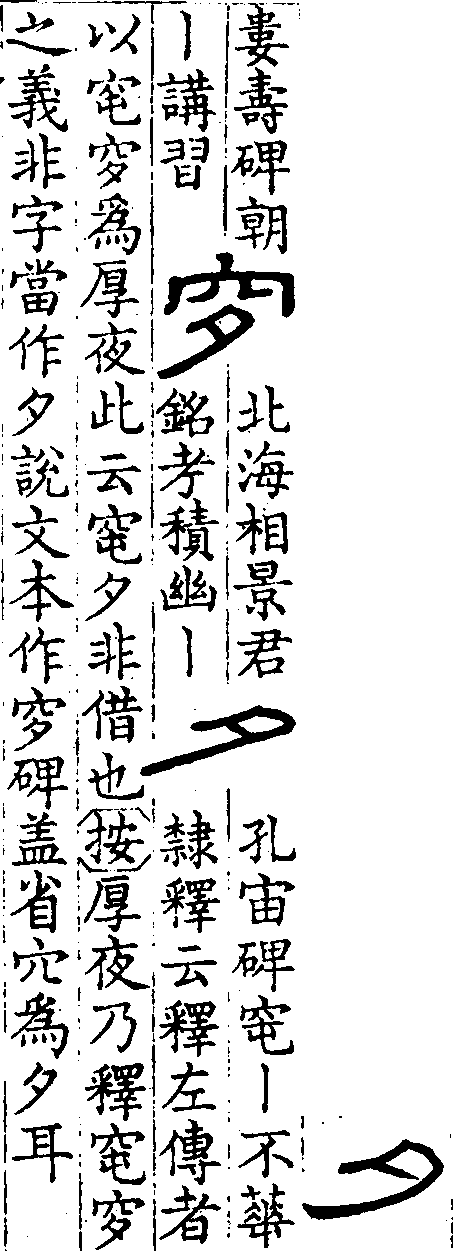 夕
婁壽碑朝
丨講習
穸
北海相景君
銘孝積幽丨
夕
孔宙碑窀丨不華
隸釋云釋左傳者
以窀穸爲厚夜此云窀夕非借也按厚夜乃釋窀穸
之義非字當作夕說文本作穸碑盖省穴爲夕耳